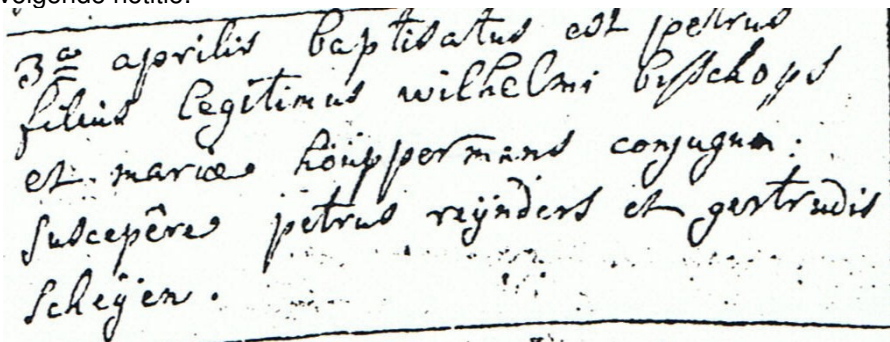 volgende notitie:
3ª aprilis baptisatus est petrus
filius legitimus wilhelmi bisschops
et mariæ höuppermans conjugum:
suscepêre petrus reÿnders et gertrudis
scheÿen.